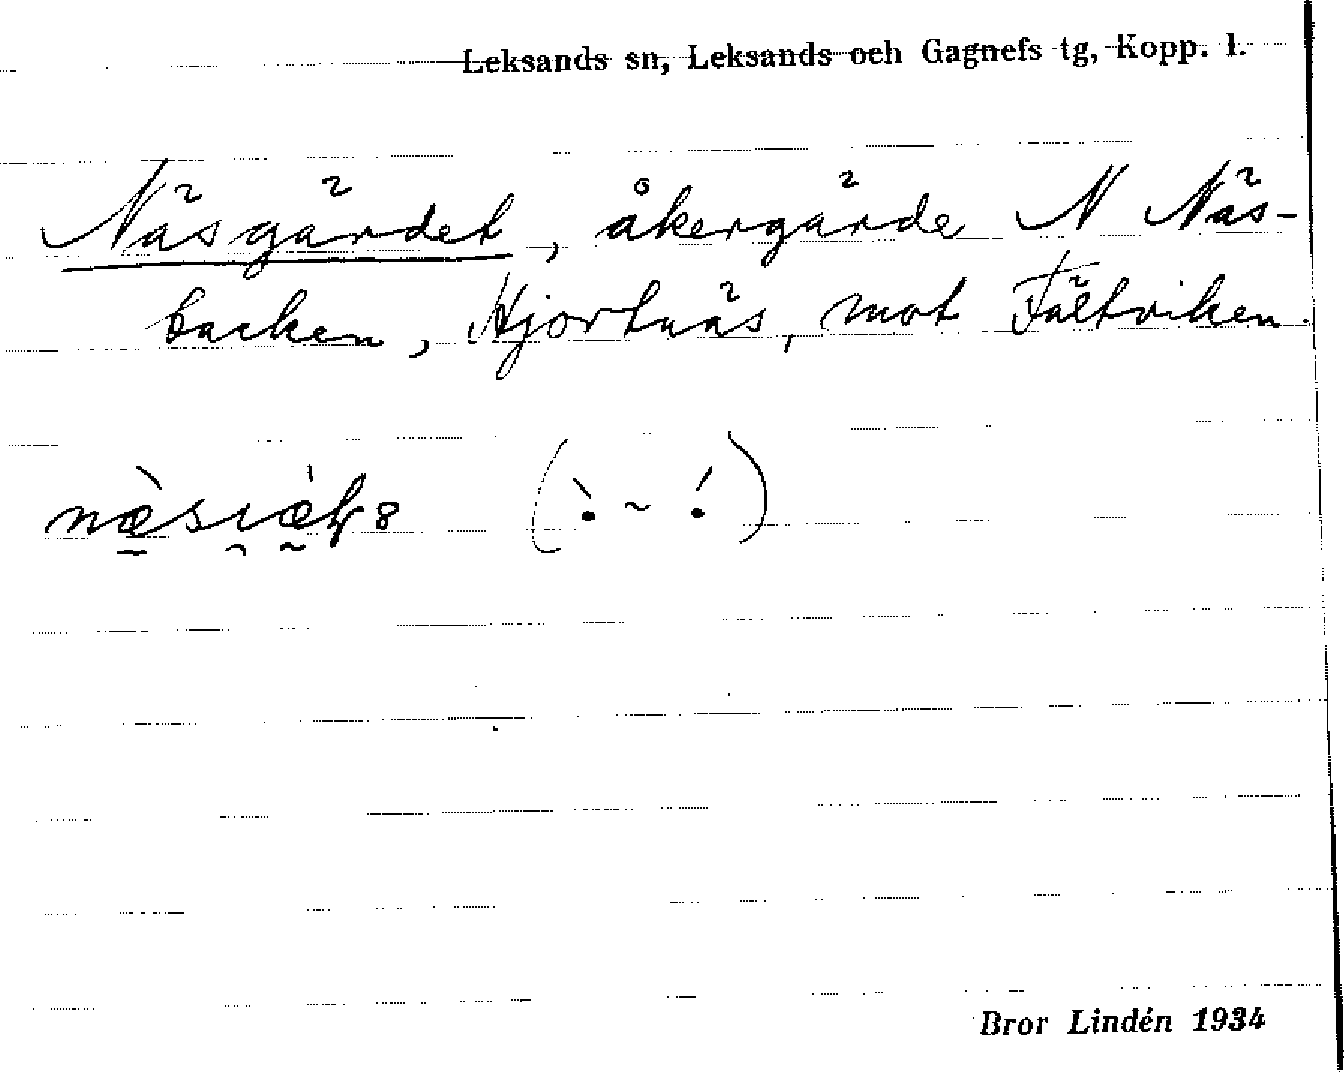 Leksands sn, Leksands och Gagnefs tg, Kopp. l.
Näsgärdet, åkergärde N Näs-
backen, Hjortnäs, mot Fältviken.
Bror Lindén 1934